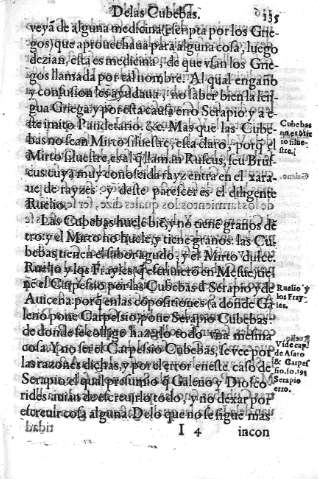 De las Cubebas. 135
veyã de alguna medicina (escripta por los Grie-
gos) que aprouechaua para alguna cosa, luego
dezian, esta es medicina, de que vsan los Grie-
gos llamada por tal nombre. Al qual engaño
y confusion les ayudaua, no saber bien la len-
gua Griega: y por esta causa erro Serapio y a e-
ste imito Pandetario. &c. Mas que las Cube-
bas no sean Mirto siluestre, esta claro, porq̃ el
Mirto siluestre, es al q̃ llamã Ruscus, seu Brus-
cus cuya muy conoscida rayz entra en el xara-
ue, de rayzes, y deste parescer es el diligente
Ruelio.
Las Cubebas huelẽ biẽ, y no tiene granos dẽ
tro: y el Mirto no huele, y tiene granos: las Cu-
bebas tienen el sabor agudo, y el Mirto dulce.
Ruelio y los Frayles q̃ escriuierõ en Mesue, tie
nẽ el Carpesio por las Cubebas d̃ Serapio y de
Auicena porq̃ en las cõpositiones (a donde Ga
leno pone Carpesio) pone Serapio Cubebas
de donde se colligo hazerlo todo vna mesma
cosa. Y no ser el Carpesio Cubebas, se vee por
las razones dichas, y por el error en este caso de
Serapio, el qual presumio q̃ Galeno y Diosco
rides auian de escreuirlo todo, y no dexar por
escreuir cosa alguna. De lo que no se sigue mas
I 4 incon
Cubebas
no es mirto
silues-
tre.
Ruelio y
los Fray-
les.
Vide cap.
de Asaro
& Carpes
sio. fo. 198
Serapio
erro.